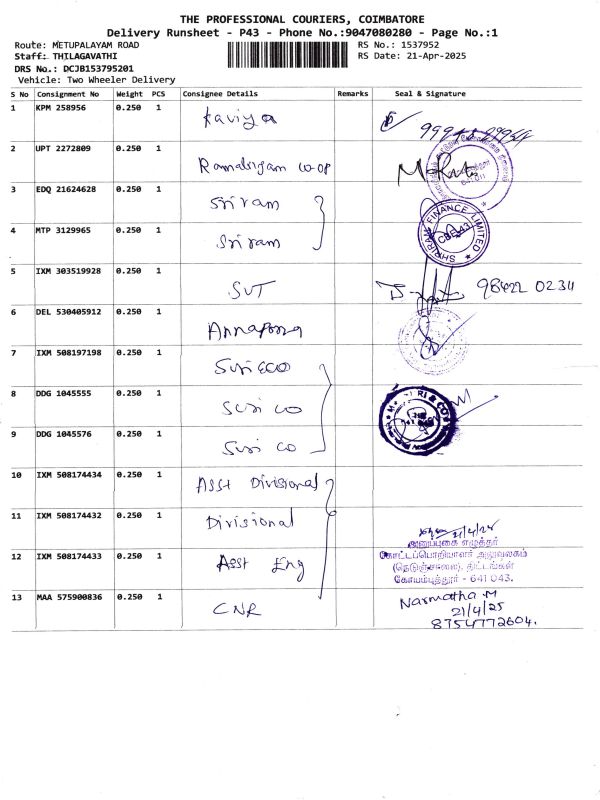 THE PROFESSIONAL COURIERS, COIMBATORE
Delivery Runsheet - P43 - Phone No.:9047080280 - Page No.:1
Route: METUPALAYAM ROAD RS No.: 1537952
Staff: THILAGAVATHI RS Date: 21-Apr-2025
DRS No.: DCJB153795201
Vehicle: Two Wheeler Delivery
S No Consignment No Weight PCS Consignee Details Remarks Seal & Signature
1 KPM 258956 0.250 1 Kaviya
2 UPT 2272809 0.250 1
3 EDQ 21624628 0.250 1 Sriram
4 MTP 3129965 0.250 1 Sriram
SHRIRAM FINANCE LIMITED
CBE-43
5 IXM 303519928 0.250 1 SVT 98422 02311
6 DEL 530405912 0.250 1
7 IXM 508197198 0.250 1
8 DDG 1045555 0.250 1
9 DDG 1045576 0.250 1
10 IXM 508174434 0.250 1 Asst Divisional
11 IXM 508174432 0.250 1 Divisional
21/4/25
அனுப்புகை எழுத்தர்
12 IXM 508174433 0.250 1 Asst Eng
கோட்டப்பொறியாளர் அலுவலகம்
(நெடுஞ்சாலை), திட்டங்கள்
கோயம்புத்தூர் - 641 043.
13 MAA 575900836 0.250 1 CNR
Narmatha.M
21/4/25
8754772604.